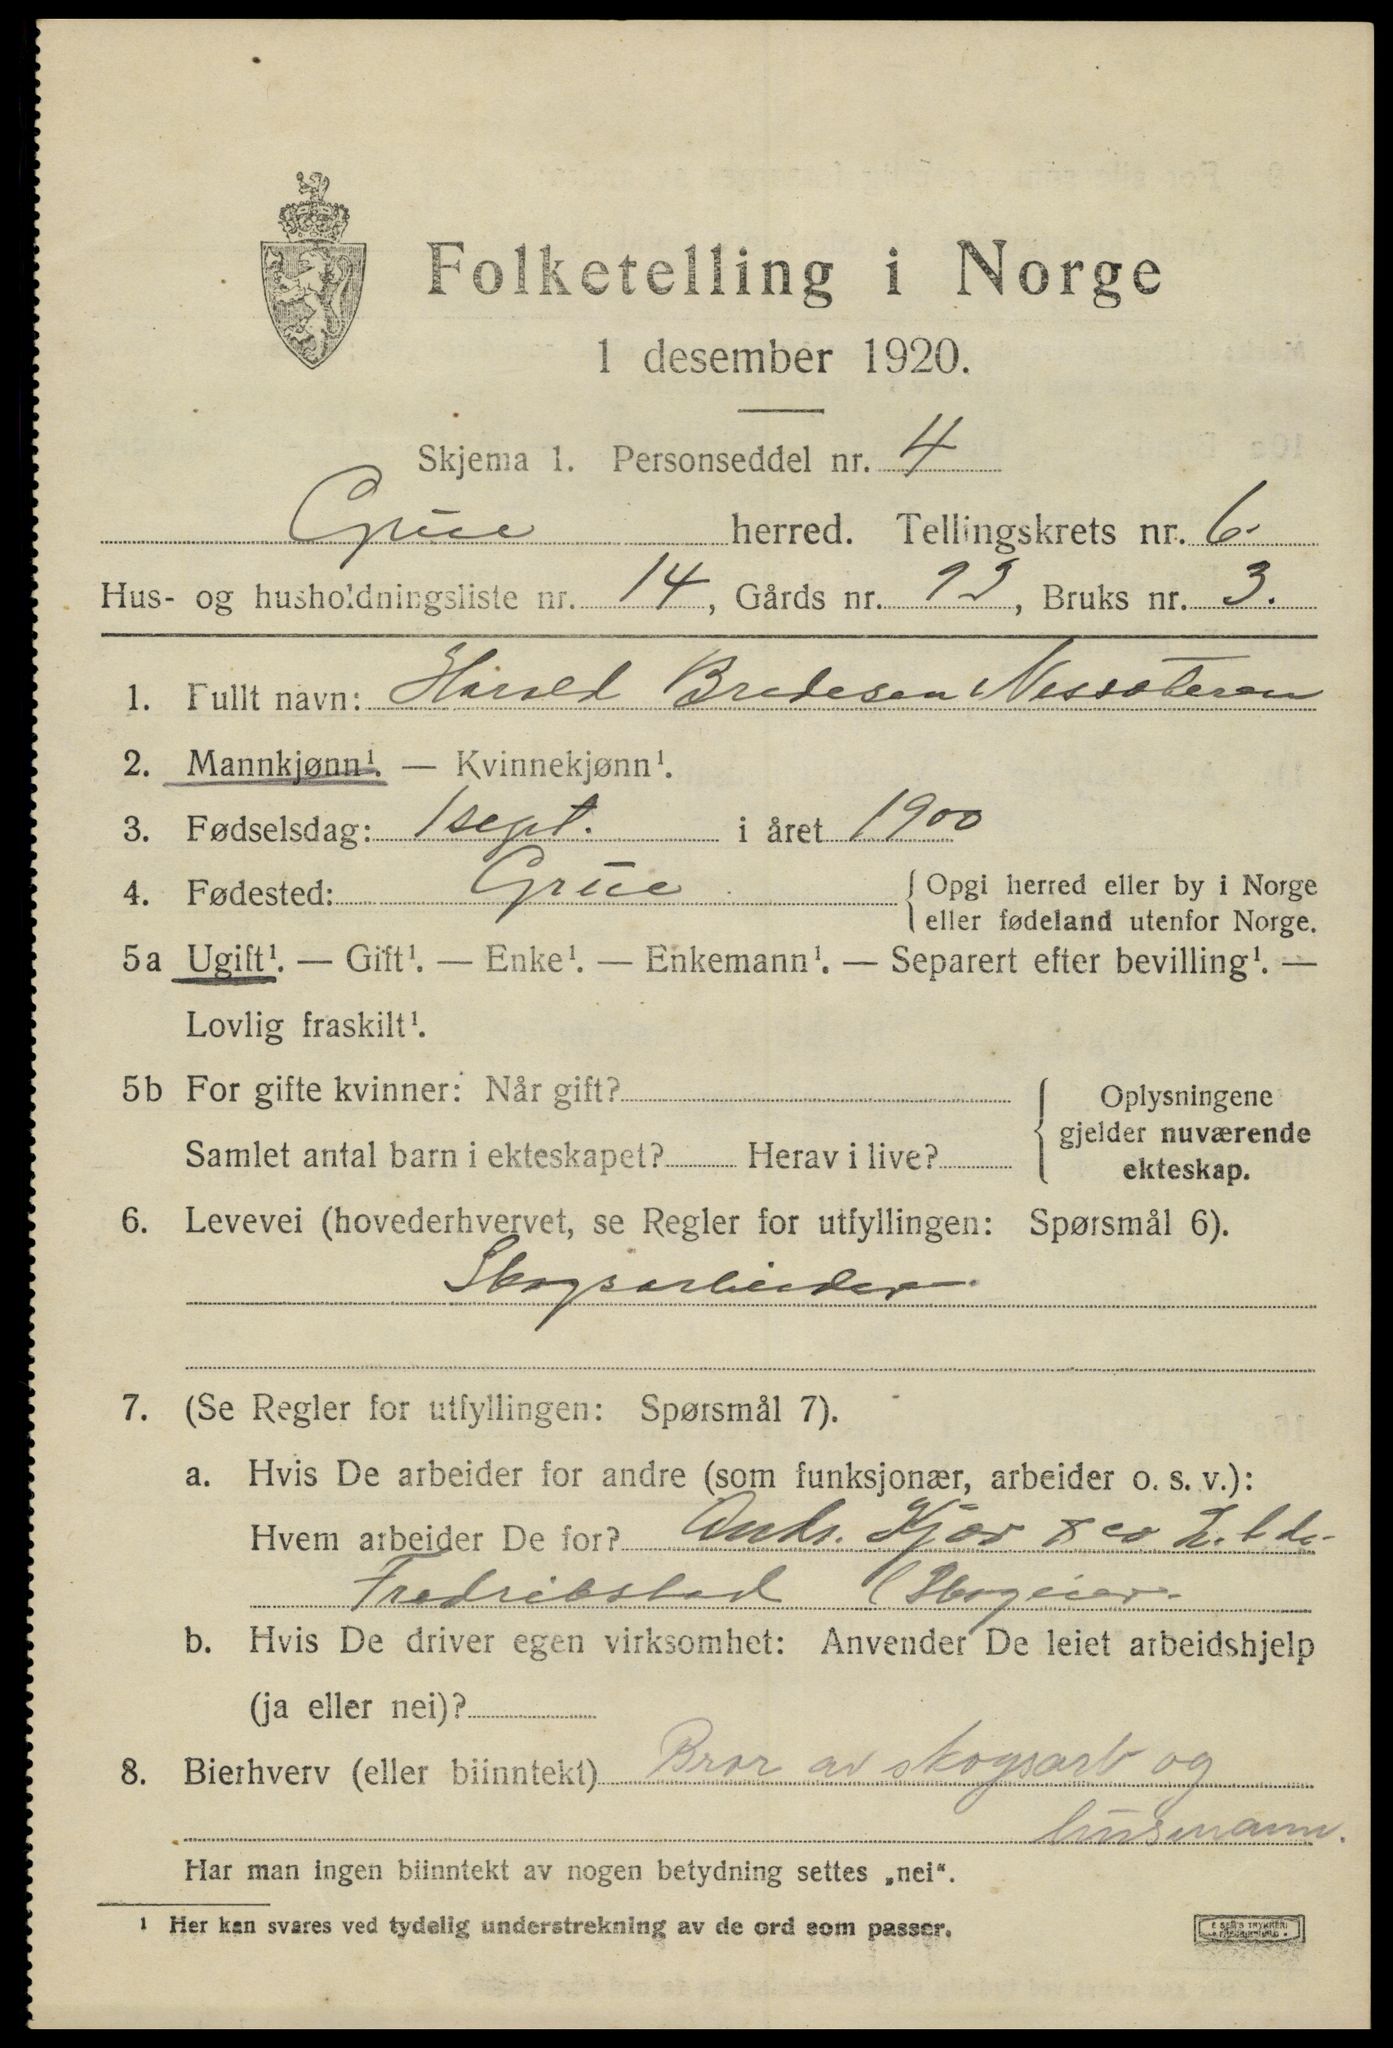 Folketelling i Norge
1 desember 1920.
Skjema 1. Personseddel nr. 4
Grue herred. Tellingskrets nr. 6
Hus- og husholdningsliste nr. 14, Gårds nr. 12, Bruks nr. 3.
1. Fullt navn: Harald Bredesen
2. Mannkjønn¹. — Kvinnekjønn¹.
3. Fødselsdag: 1 sept. i året 1900
4. Fødested: Grue { Opgi herred eller by i Norge
eller fødeland utenfor Norge.
5a Ugift¹. — Gift¹. — Enke¹. — Enkemann¹. — Separert efter bevilling¹. —
Lovlig fraskilt¹.
5b For gifte kvinner: Når gift? { Oplysningene
gjelder nuværende
Samlet antal barn i ekteskapet? Herav i live? ekteskap.
6. Levevei (hovederhvervet, se Regler for utfyllingen: Spørsmål 6).
Skogsarbeider
7. (Se Regler for utfyllingen: Spørsmål 7).
a. Hvis De arbeider for andre (som funksjonær, arbeider o. s. v.):
Hvem arbeider De for? Ands. Kjær & co
Fredrikstad (Skogeier
b. Hvis De driver egen virksomhet: Anvender De leiet arbeidshjelp
(ja eller nei)?
8. Bierhverv (eller biinntekt) Bror av skogsarb og
husmann.
Har man ingen biinntekt av nogen betydning settes „nei".
¹ Her kan svares ved tydelig understrekning av de ord som passer.